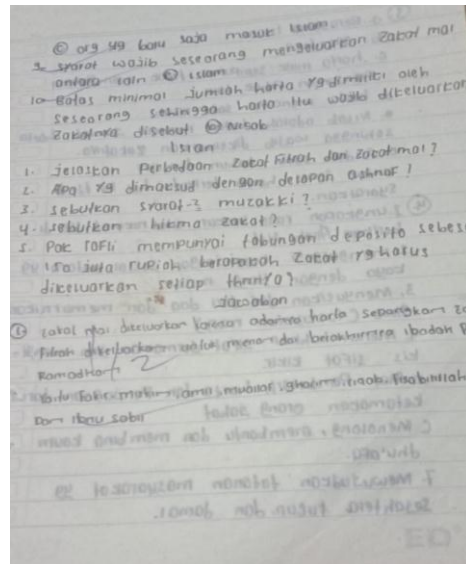 © org yg baru saja masuk Islam
9. syarat wajib seseorang mengeluarkan zakat mal
antara lain © islam
10 Batas minimal jumlah harta yg dimiliki oleh
seseorang sehingga harta itu wajib dikeluarkan
zakatnya disebut nisob
Isian
1. jelaskan Perbedaan zakat Fitrah dan zakat mal?
2. Apa yg dimaksud dengan delapan ashnaf!
3. sebutkan syarat-2 muzakki?
4. sebutkan hikma zakat?
5. Pak rafli mempunyai tabungan deposito sebes
150 juta rupiah berapakah zakat yg harus
dikeluarkan setiap thnnya?
Jawaban
① zakat mal dikeluarkan karena adanya harta sepangkan
Fitrah dikeluarkan untuk menandai berakhirnya ibadah
Ramadhan
Fakir
Dan Ibnu sabil